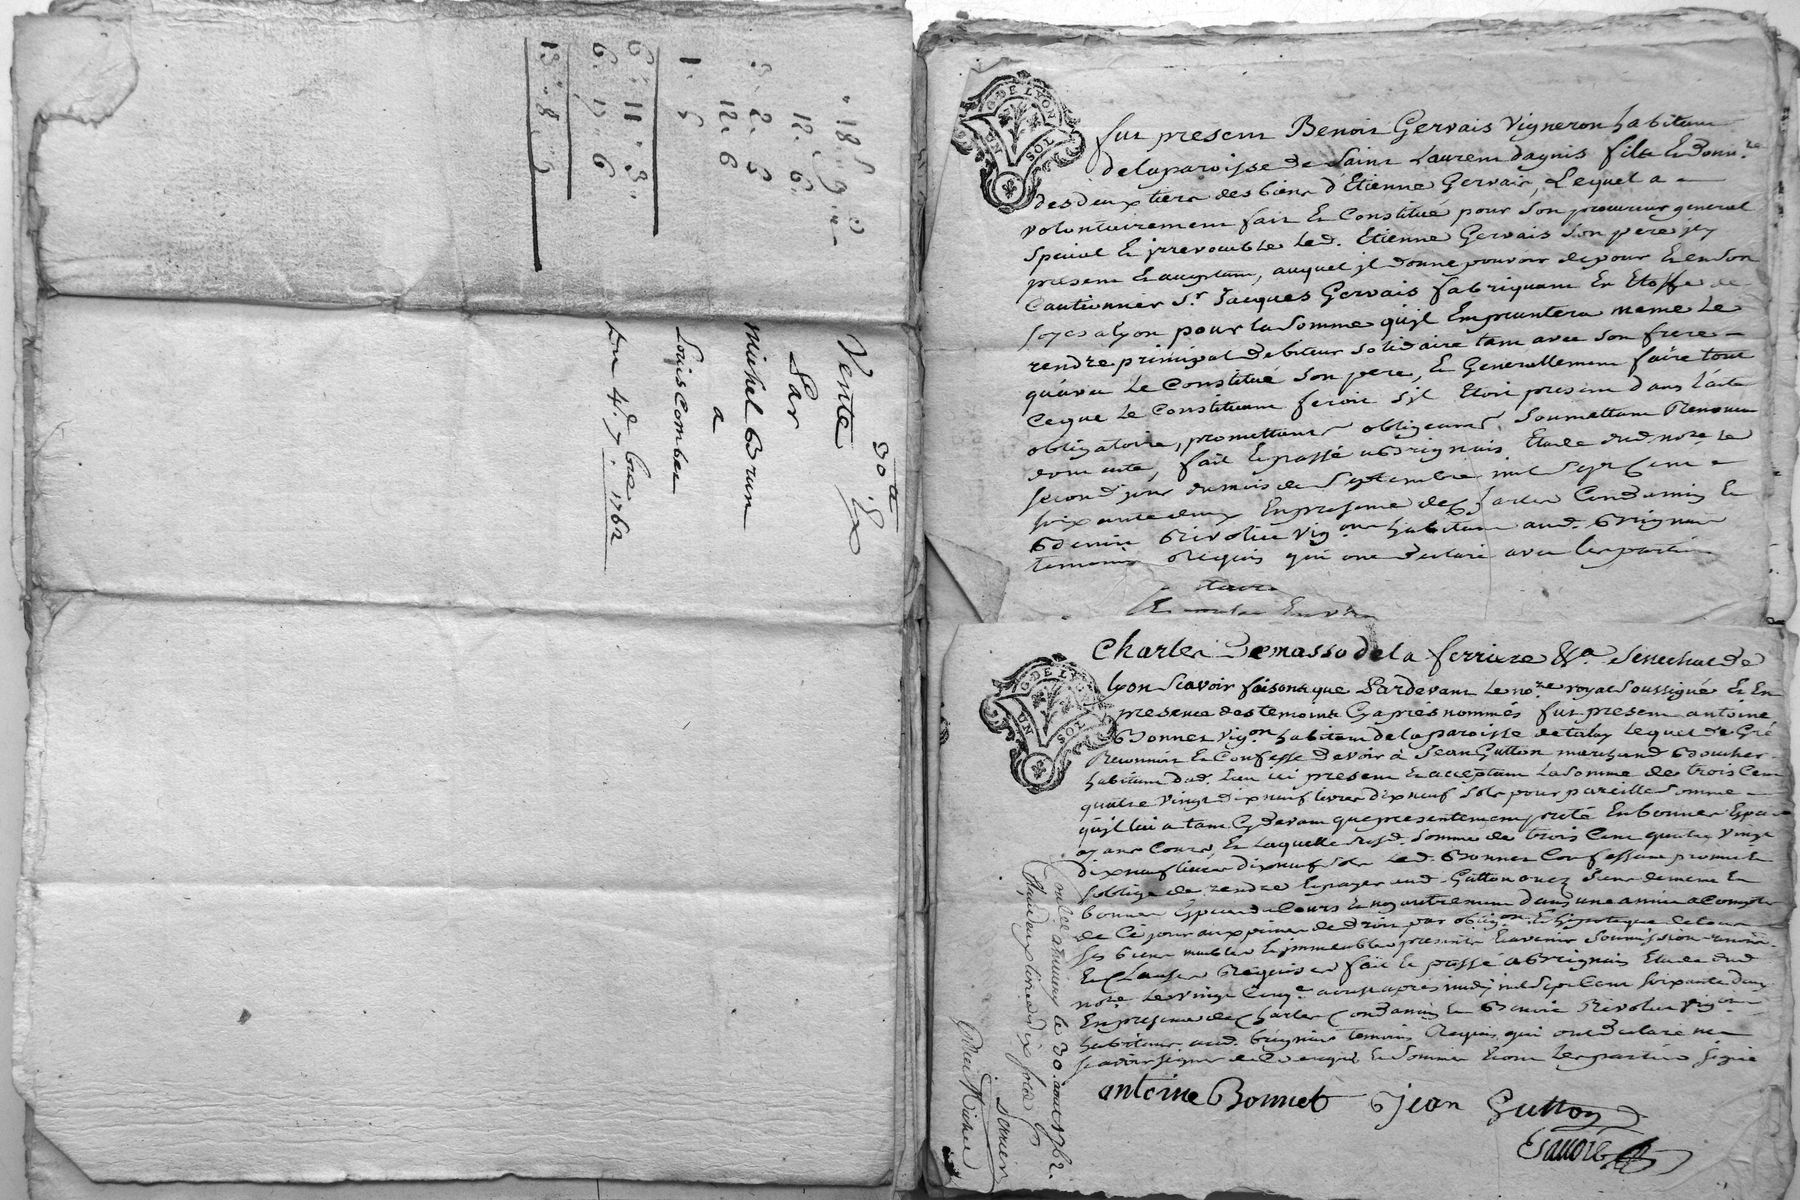 30.e Ex
Vente
Par
Michel Brun
a
Louis Combe
Du 4.e 7.bre 1762
12. 6.
3. 2. 6
12. 6
1. 5
6. 11. 3.
6. 17. 6
13. 8. 9
G. DE LYON
fut present Benoit Gervais Vigneron habitant
de la paroisse de Saint Laurent dagnis fils Et donn.re
des deux tiers des biens d'Etienne Gervais, Lequel a
volontairement fait Et Constitué pour son procureur general
special Et jrrevocable led. Etienne Gervais son pere jcy
present Et acceptant, auquel jl donne pouvoir de pour Et en son
Cautionner S.r Jacques Gervais fabriquant En Etoffe de
soyes a lyon pour la somme qu'jl Empruntera meme le
rendre principal debiteur solidaire tant avec son frere
qu'avec le Constitué son pere, Et Generallement faire tout
Ceque le Constituant feroit s'jl Etoit present dans l'acte
obligatoire, promettant obligeant soumettant Renon.
dont acte, fait Et passé a Brignais Etude dud. no.re le
second jour du mois de Septembre mil Sept Cent
soixante deux En presence de Charles Condamin Et
Benoit Rivolier Vig.ons habitans aud. Brignais
temoins Requis qui ont declaré avec les parties
Charles Demasso de la ferriere &.a Senechal de
lyon Scavoir faisons que Pardevant le no.re royal soussigné Et En
presence des temoins Cy apres nommés fut present antoine
Bonnet vig.on habitant de la paroisse de taluy lequel de Gré
Reconnoit Et Confesse devoir à Jean Gutton marchand Boucher
habitant dud. Lieu ici present Et acceptant La somme de trois Cent
quatre vingt dix neuf livres dix neuf sols pour pareille somme
qu'jl lui a tant Cy devant que presentement preté En bonnes Especes
ayant Cours, Et laquelle susd. somme de trois Cent quatre vingt
dix neuf livres dix neuf sols led. Bonnet Confessant promet Et
s'oblige de rendre Et payer aud. Gutton
bonnes Especes de Cours Et non autrement dans une année a Compter
de Ce jour aux peines de droit par oblig.on Et hipoteque de tous
ses biens meubles Et jmmeubles presents Et avenir soumission renon.
Et Clauses Requises fait Et passé a Brignais Etude dud.
no.re le vingt Cinq.e aoust apres midy mil Sept Cent soixante deux
En presence de Charles Condamin Et Benoit Rivolier vig.ons
habitans aud. brignais temoins Requis qui ont declaré ne
scavoir signer de Ce enquis Et sommés Et ont les parties signé
antoine Bonnet Jean Gutton
Controllé a le 30. aout 1762.